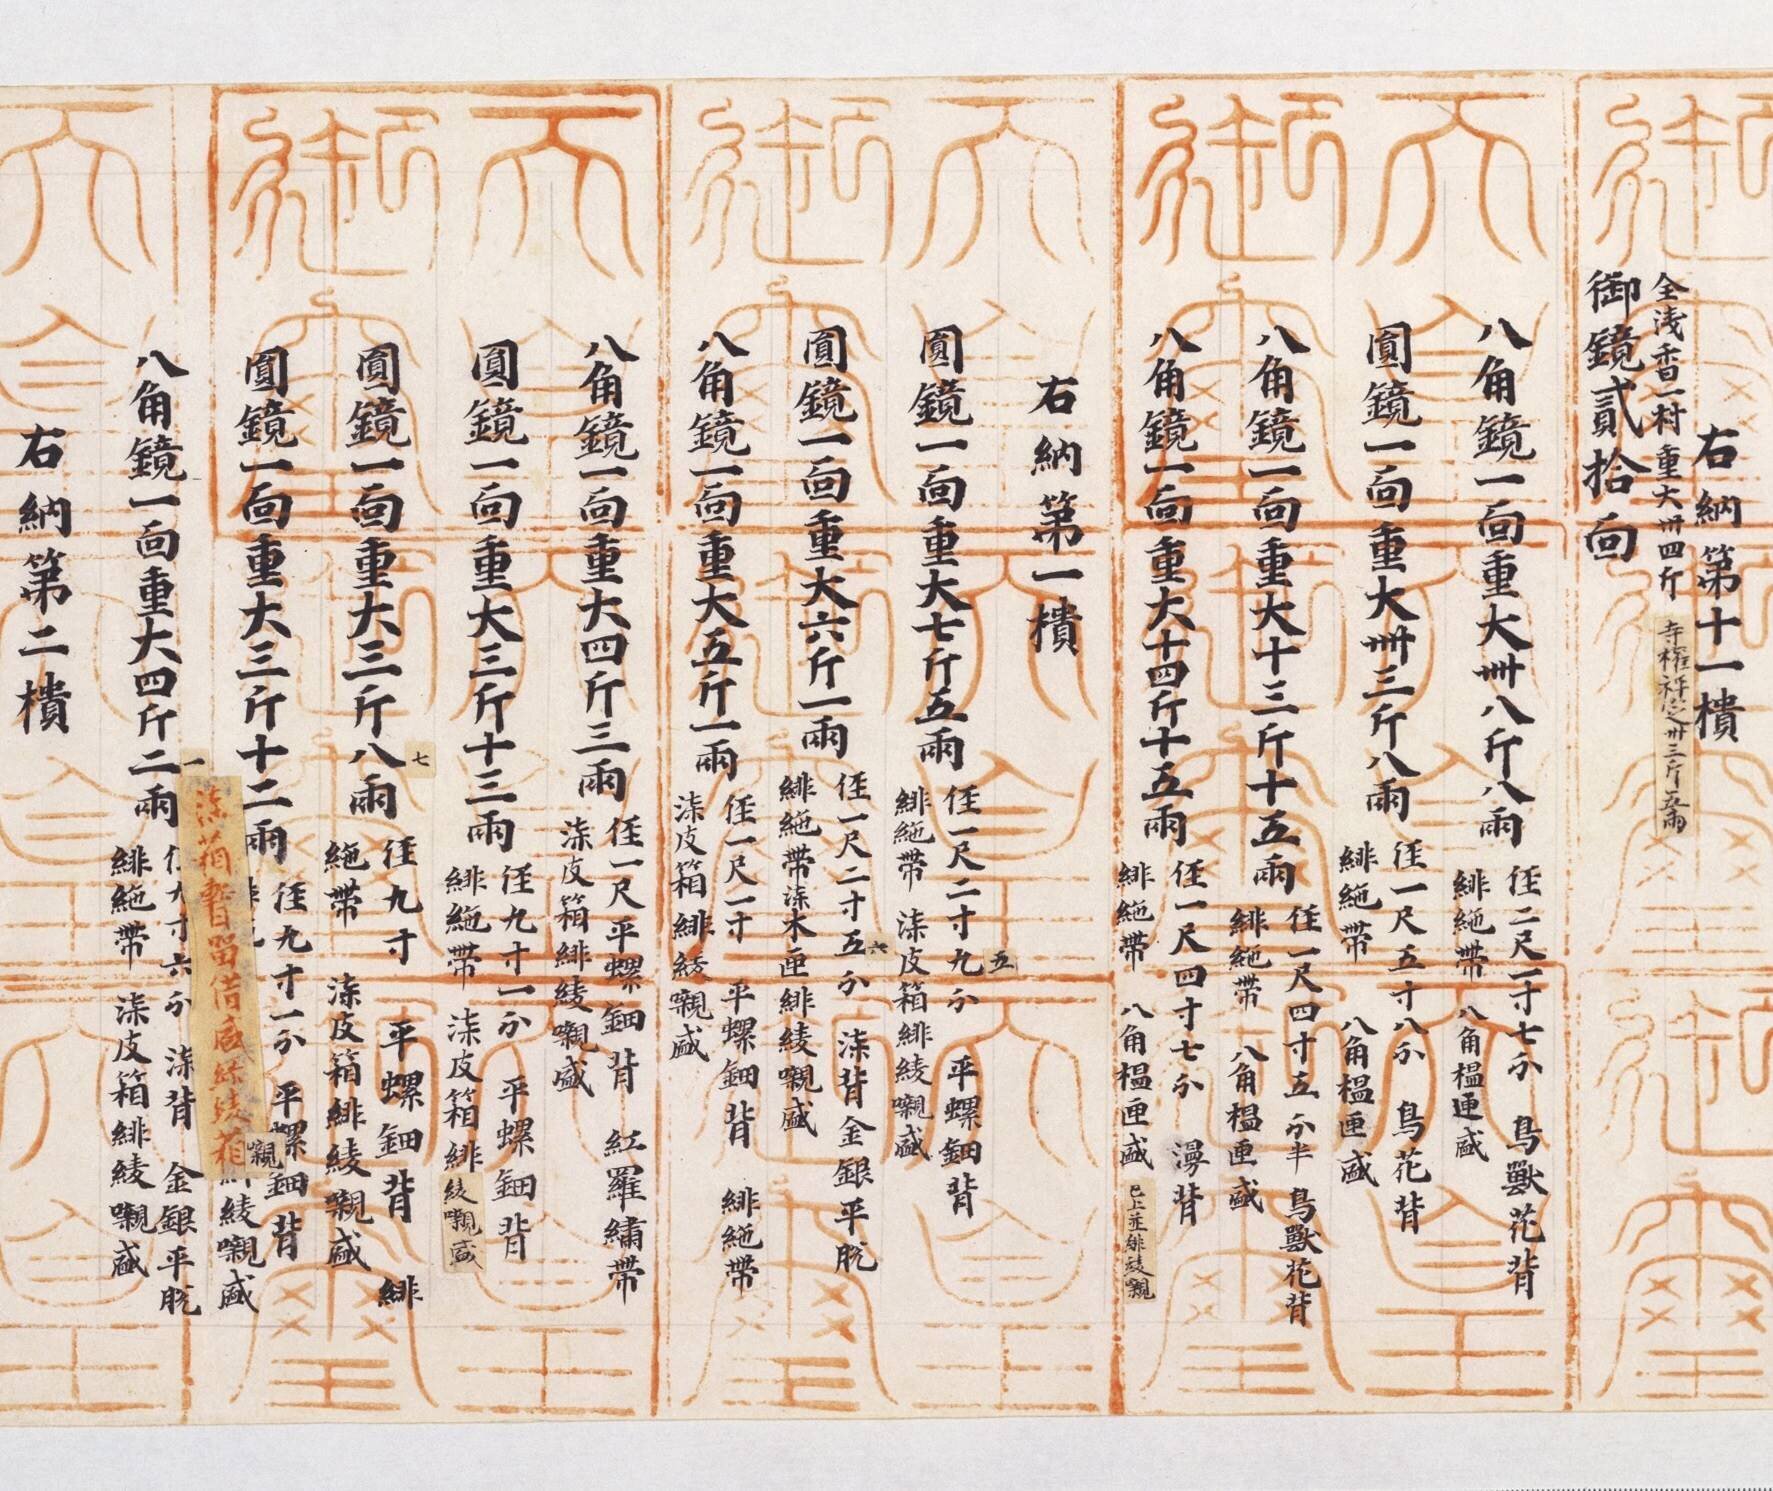 右納第十一樻
全淺香一村 重大卌四斤
寺權 卅三斤五兩
御鏡貳拾面
八角鏡一面重大卌八斤八兩
徑二尺一寸七分 鳥獸花背
緋絁帶 八角榲匣盛
圓鏡一面重大卌三斤八兩
徑一尺五寸八分 鳥花背
緋絁帶 八角榲匣盛
八角鏡一面重大十三斤十五兩
徑一尺四寸五分半 鳥獸花背
緋絁帶 八角榲匣盛
八角鏡一面重大十四斤十五兩
徑一尺四寸七分 漫背
緋絁帶 八角榲匣盛
已上並緋綾嚫
右納第一樻
圓鏡一面重大七斤五兩
徑一尺二寸九分 平螺鈿背
五
緋絁帶 柒皮箱緋綾嚫盛
圓鏡一面重大六斤一兩
徑一尺二寸五分 柒背金銀平脫
六
緋絁帶柒木匣緋綾嚫盛
八角鏡一面重大五斤一兩
徑一尺一寸 平螺鈿背 緋絁帶
柒皮箱緋綾嚫盛
八角鏡一面重大四斤三兩
徑一尺平螺鈿背 紅羅繡帶
柒皮箱緋綾嚫盛
圓鏡一面重大三斤十三兩
徑九寸一分 平螺鈿背
緋絁帶 柒皮箱緋綾嚫盛
圓鏡一面重大三斤八兩
七
徑九寸 平螺鈿背 緋
絁帶 柒皮箱緋綾嚫盛
圓鏡一面重大三斤十二兩
徑九寸一分 平螺鈿背
綾嚫盛
嚫
柒箱暫留借盛
一
八角鏡一面重大四斤二兩
徑九寸六分 柒背 金銀平脫
緋絁帶 柒皮箱緋綾嚫盛
右納第二樻
天皇御璽